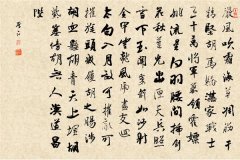 嚴風吹霜海草凋筋
幹精堅胡馬驕漢家戰士
三十萬將軍兼領霍嫖
姚流星白羽腰間插劍
花秋蓮光出匣天兵照
雪下玉關虜箭如沙射
金甲雲龍風虎盡交回
太白入月敵可摧敵可
摧旄頭滅履胡之腸涉
胡血懸胡青天上埋胡
紫塞傍胡無人漢道昌
陛